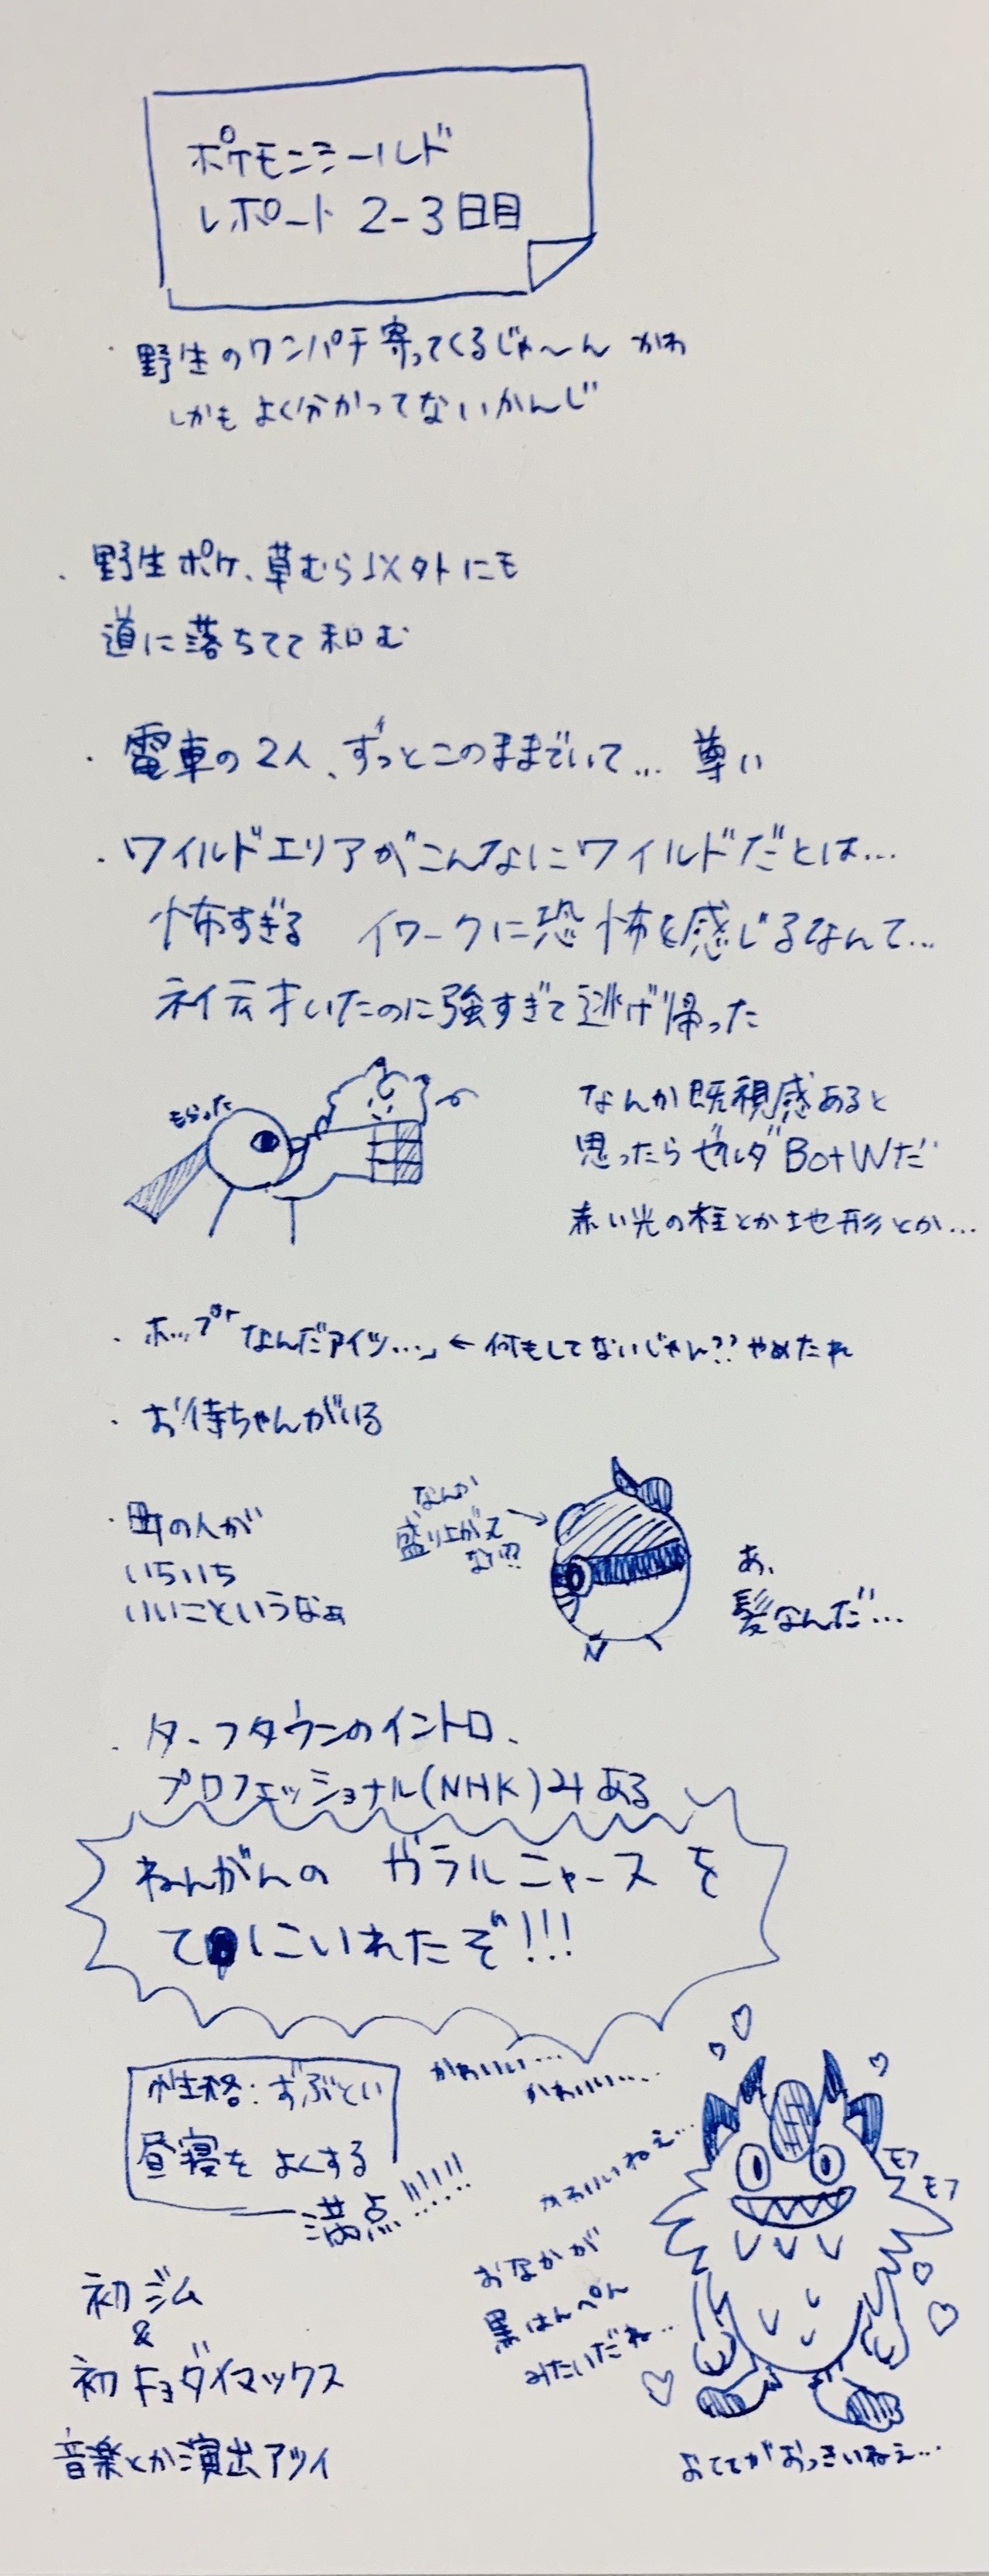 ポケモンシールド
レポート 2-3日目
・野生のワンパチ寄ってくるじゃ〜ん かわ
しかもよく分かってないかんじ
・野生ポケ、草むら以外にも
道に落ちてて和む
・電車の2人、ずっとこのままでいて… 尊い
・ワイルドエリアがこんなにワイルドだとは…
怖すぎる イワークに恐怖を感じるなんて…
ネイティオいたのに強すぎて逃げ帰った
もらった
なんか既視感あると
思ったらゼルダBotWだ
赤い光の柱とか地形とか…
・ホップ「なんだアイツ…」←何もしてないじゃん?? やめたれ
・お侍ちゃんがいる
・町の人が
いちいち
いいこというなぁ
なんか
盛り上がって
ない??
あ、
髪なんだ…
・ターフタウンのイントロ、
プロフェッショナル(NHK)みある
ねんがんの ガラルニャースを
てにいれたぞ!!!
性格:ずぶとい
昼寝をよくする
満点!!!!!!
かわいい…
かわいい…
かわいいねえ…
モフ
モフ
おなかが
黒はんぺん
みたいだね…
おててがおっきいねえ…
初ジム
&
初キョダイマックス
音楽とか演出アツイ